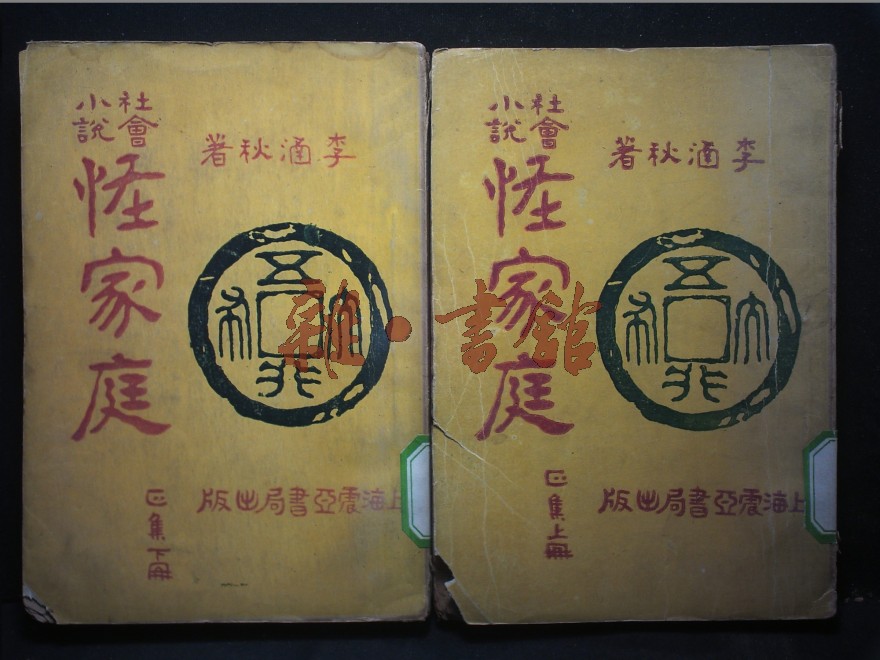 社會
小說
怪家庭
李涵秋著
五行大布
正集下冊
上海震亞書局出版
社會
小說
怪家庭
李涵秋著
五行大布
正集上冊
上海震亞書局出版
雜·書館